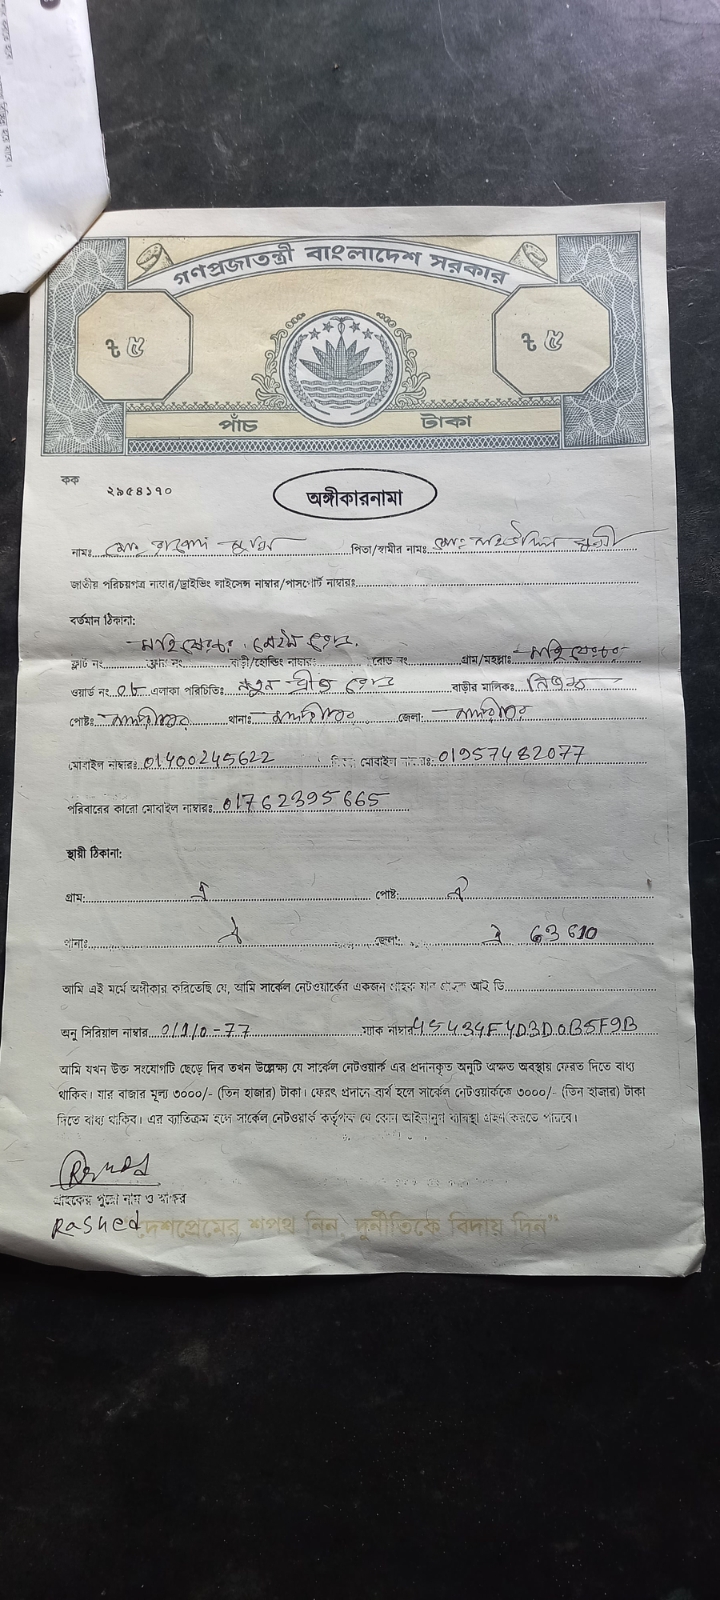 গণপ্রজাতন্ত্রী বাংলাদেশ সরকার
৳ ৫ ৳ ৫
পাঁচ টাকা
কক
২৯৫৪১৭০
অঙ্গীকারনামা
নামঃ মোঃ পিতা/স্বামীর নামঃ মোঃ
জাতীয় পরিচয়পত্র নাম্বার/ড্রাইভিং লাইসেন্স নাম্বার/পাসপোর্ট নাম্বারঃ
বর্তমান ঠিকানা:
ফ্লাট নং ফ্লোর নং বাড়ী/হোল্ডিং নাম্বারঃ রোড নং গ্রাম/মহল্লাঃ
ওয়ার্ড নং ০৮ এলাকা পরিচিতিঃ নতুন ব্রীজ বাড়ীর মালিকঃ নিজস্ব
পোষ্টঃ মাদারীপুর থানাঃ মাদারীপুর জেলা: মাদারীপুর
মোবাইল নাম্বারঃ 01400245622 মোবাইল নাম্বারঃ 01957482077
পরিবারের কারো মোবাইল নাম্বারঃ 01762395665
স্থায়ী ঠিকানা:
গ্রাম: ঐ পোষ্ট: ঐ
থানাঃ ঐ জেলা: ঐ
আমি এই মর্মে অঙ্গীকার করিতেছি যে, আমি সার্কেল নেটওয়ার্কের একজন গ্রাহক যার গ্রাহক আই ডি
অনু সিরিয়াল নাম্বার ম্যাক নাম্বার
আমি যখন উক্ত সংযোগটি ছেড়ে দিব তখন উল্লেক্ষ্য যে সার্কেল নেটওয়ার্ক এর প্রদানকৃত অনুটি অক্ষত অবস্থায় ফেরত দিতে বাধ্য
থাকিব। যার বাজার মূল্য ৩০০০/- (তিন হাজার) টাকা। ফেরৎ প্রদানে ব্যর্থ হলে সার্কেল নেটওয়ার্ককে ৩০০০/- (তিন হাজার) টাকা
দিতে বাধ্য থাকিব। এর ব্যতিক্রম হলে সার্কেল নেটওয়ার্ক কর্তৃপক্ষ যে কোন আইনানুগ ব্যবস্থা গ্রহণ করতে পারবে।
গ্রাহকের পুরো নাম ও স্বাক্ষর
Rashed
"দেশপ্রেমের শপথ নিন, দুর্নীতিকে বিদায় দিন"